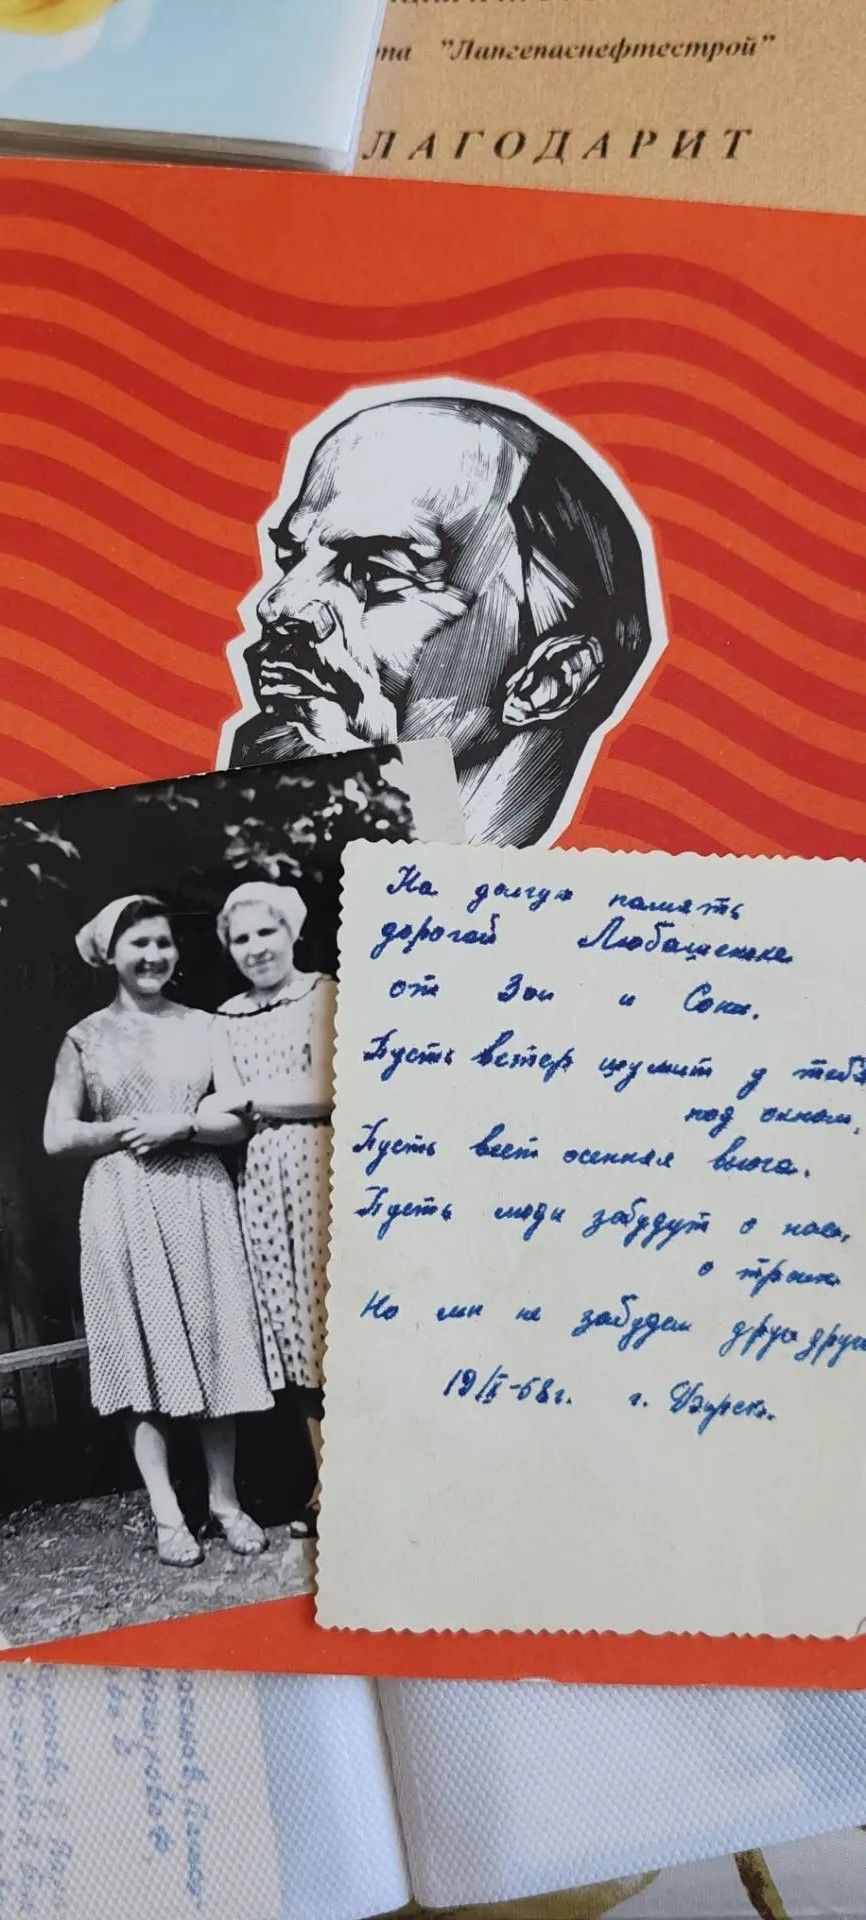 та "Лангепаснефтестрой"
ЛАГОДАРИТ
На долгую память
дорогой Любашеньке
от Зои и Сони.
Пусть ветер шумит у тебя
под окном,
Пусть веет осенняя вьюга.
Пусть люди забудут о нас,
о троих
Но мы не забудем друг друга
19/X-58г. г.